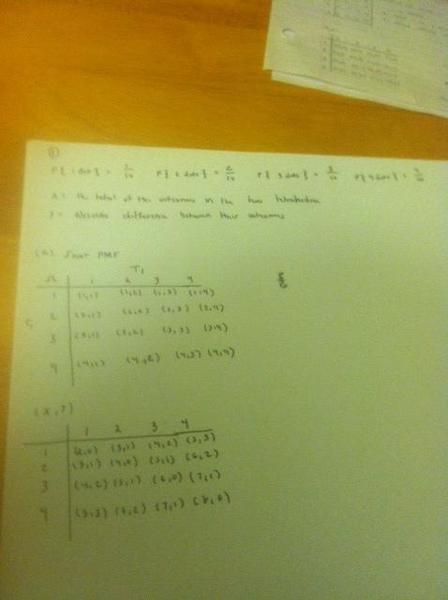 P{1 dot} = 1/10 P{2 dots} = 2/10 P{3 dots} = 3/10 P{4 dots} = 4/10
X = the total of the outcomes in the two tetrahedra
Y = absolute difference between their outcomes
(a) Joint PMF
1 2 3 4
1 (1,1) (1,2) (1,3) (1,4)
2 (2,1) (2,2) (2,3) (2,4)
3 (3,1) (3,2) (3,3) (3,4)
4 (4,1) (4,2) (4,3) (4,4)
(X,Y)
1 2 3 4
1 (2,0) (3,1) (4,2) (5,3)
2 (3,1) (4,0) (5,1) (6,2)
3 (4,2) (5,1) (6,0) (7,1)
4 (5,3) (6,2) (7,1) (8,0)